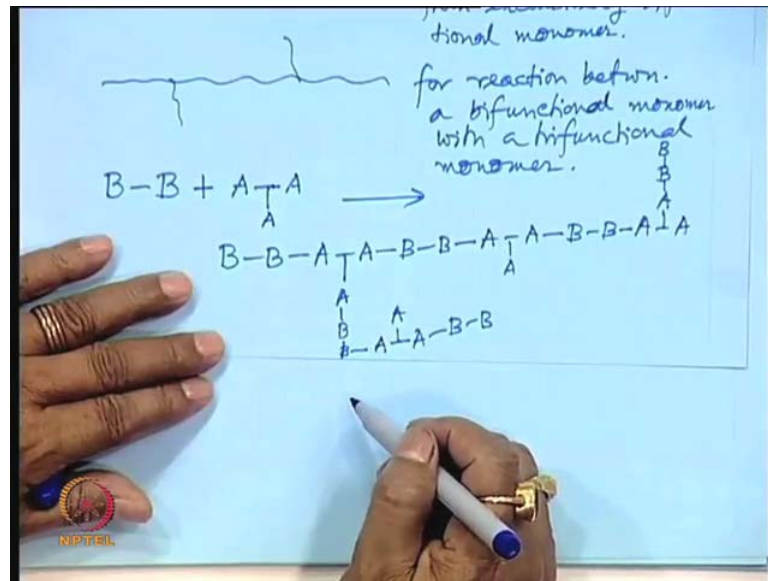 tional monomer.
for reaction betwn.
a bifunctional monomer
with a trifunctional
monomer.
B-B + A-┬-A ⟶
A
B
B
A
B-B-A-┬-A-B-B-A-┬-A-B-B-A-┴-A
A
A
B
A
B-A-┴-A-B-B
NPTEL